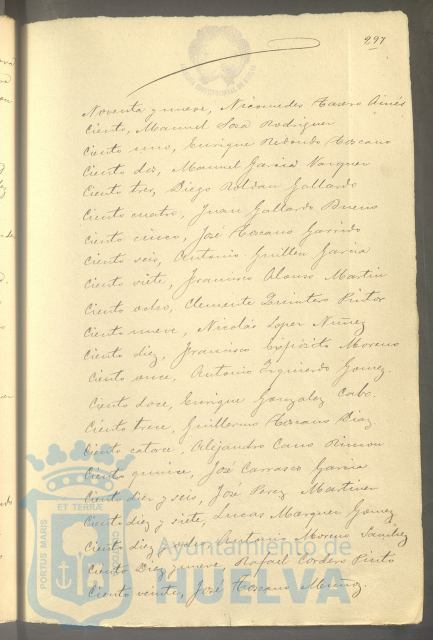 297
Noventa y nueve, Nicomedes Tasero
Ciento, Manuel Rodriguez
Ciento uno, Enrique Redondo Toscano
Ciento dos, Manuel Garcia Vazquez
Ciento tres, Diego Roldan Gallardo
Ciento cuatro, Juan Gallardo Bueno
Ciento cinco, José Toscano Garrido
Ciento seis, Antonio Guillen Garcia
Ciento siete, Francisco Alonso Martin
Ciento ocho, Clemente Quintero Pintor
Ciento nueve, Nicolás Lopez Nuñez
Ciento diez, Francisco Expósito Moreno
Ciento once, Antonio Izquierdo Gomez.
Ciento doce, Enrique Gonzalez Cabo.
Ciento trece, Guillermo Toscano Diaz
Ciento catorce, Alejandro Cano Rincon
Ciento quince, José Carrasco Garcia
Ciento diez y seis, José Perez Martinez
Ciento diez y siete, Lucas Marquez Gomez
Ciento diez y ocho, Antonio Moreno Sanchez
Ciento Diez y nueve, Rafael Cordero Pinto
Ciento veinte, José Toscano Muñoz.
ET TERRÆ
PORTUS MARIS
Ayuntamiento de
HUELVA